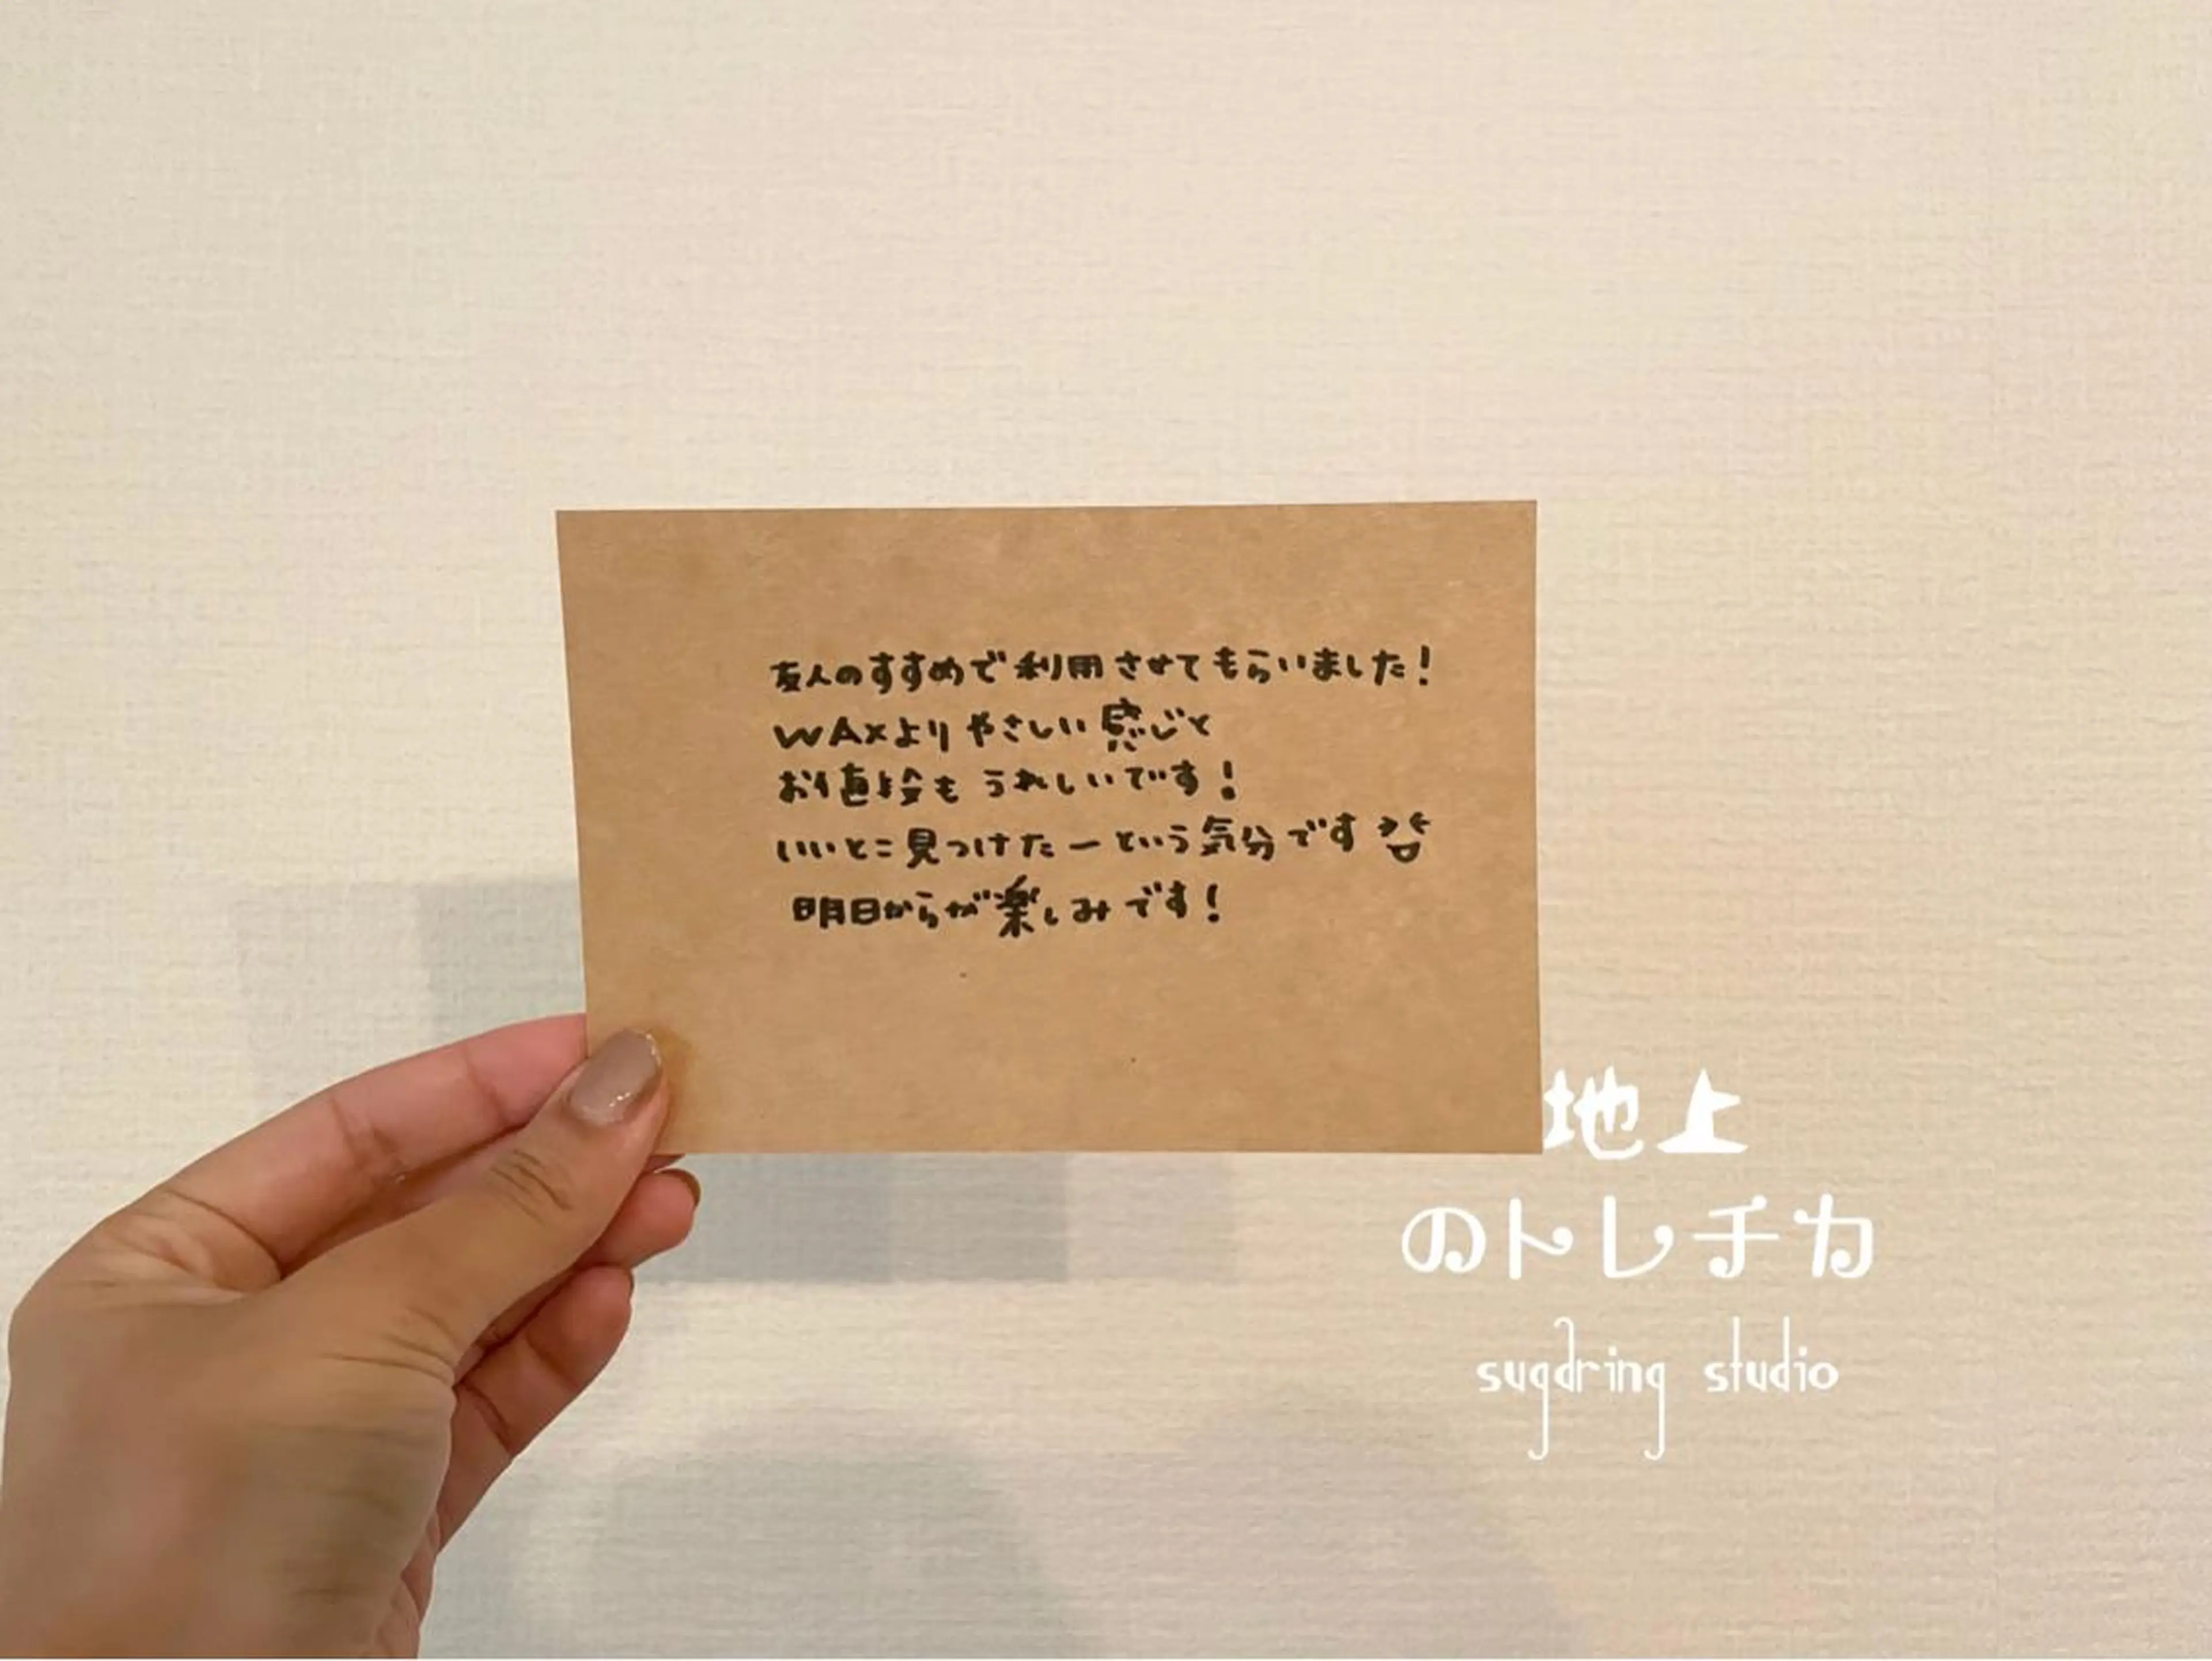 友人のすすめで利用させてもらいました！
WAXよりやさしい感じと
お値段もうれしいです！
いいとこ見つけたーという気分です
明日からが楽しみです！
地上
のトレチカ
sugdring studio